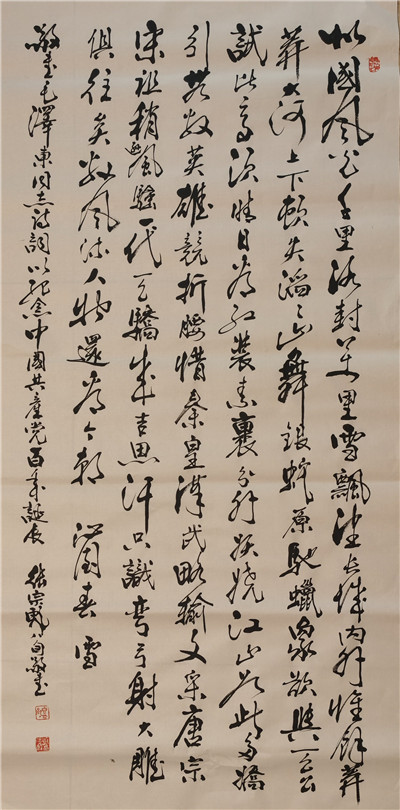 北國風光千里冰封萬里雪飄望長城內外惟餘莽
莽大河上下頓失滔滔山舞銀蛇原馳蠟象欲與天公
試比高須晴日看紅裝素裹分外妖嬈江山如此多嬌
引無數英雄競折腰惜秦皇漢武略輸文采唐宗
宋祖稍騷一代天驕成吉思汗只識彎弓射大雕
俱往矣數風流人物還看今朝 沁園春 雪
敬書毛澤東同志詩詞以紀念中國共產党百年誕辰 徐宗八旬敬書